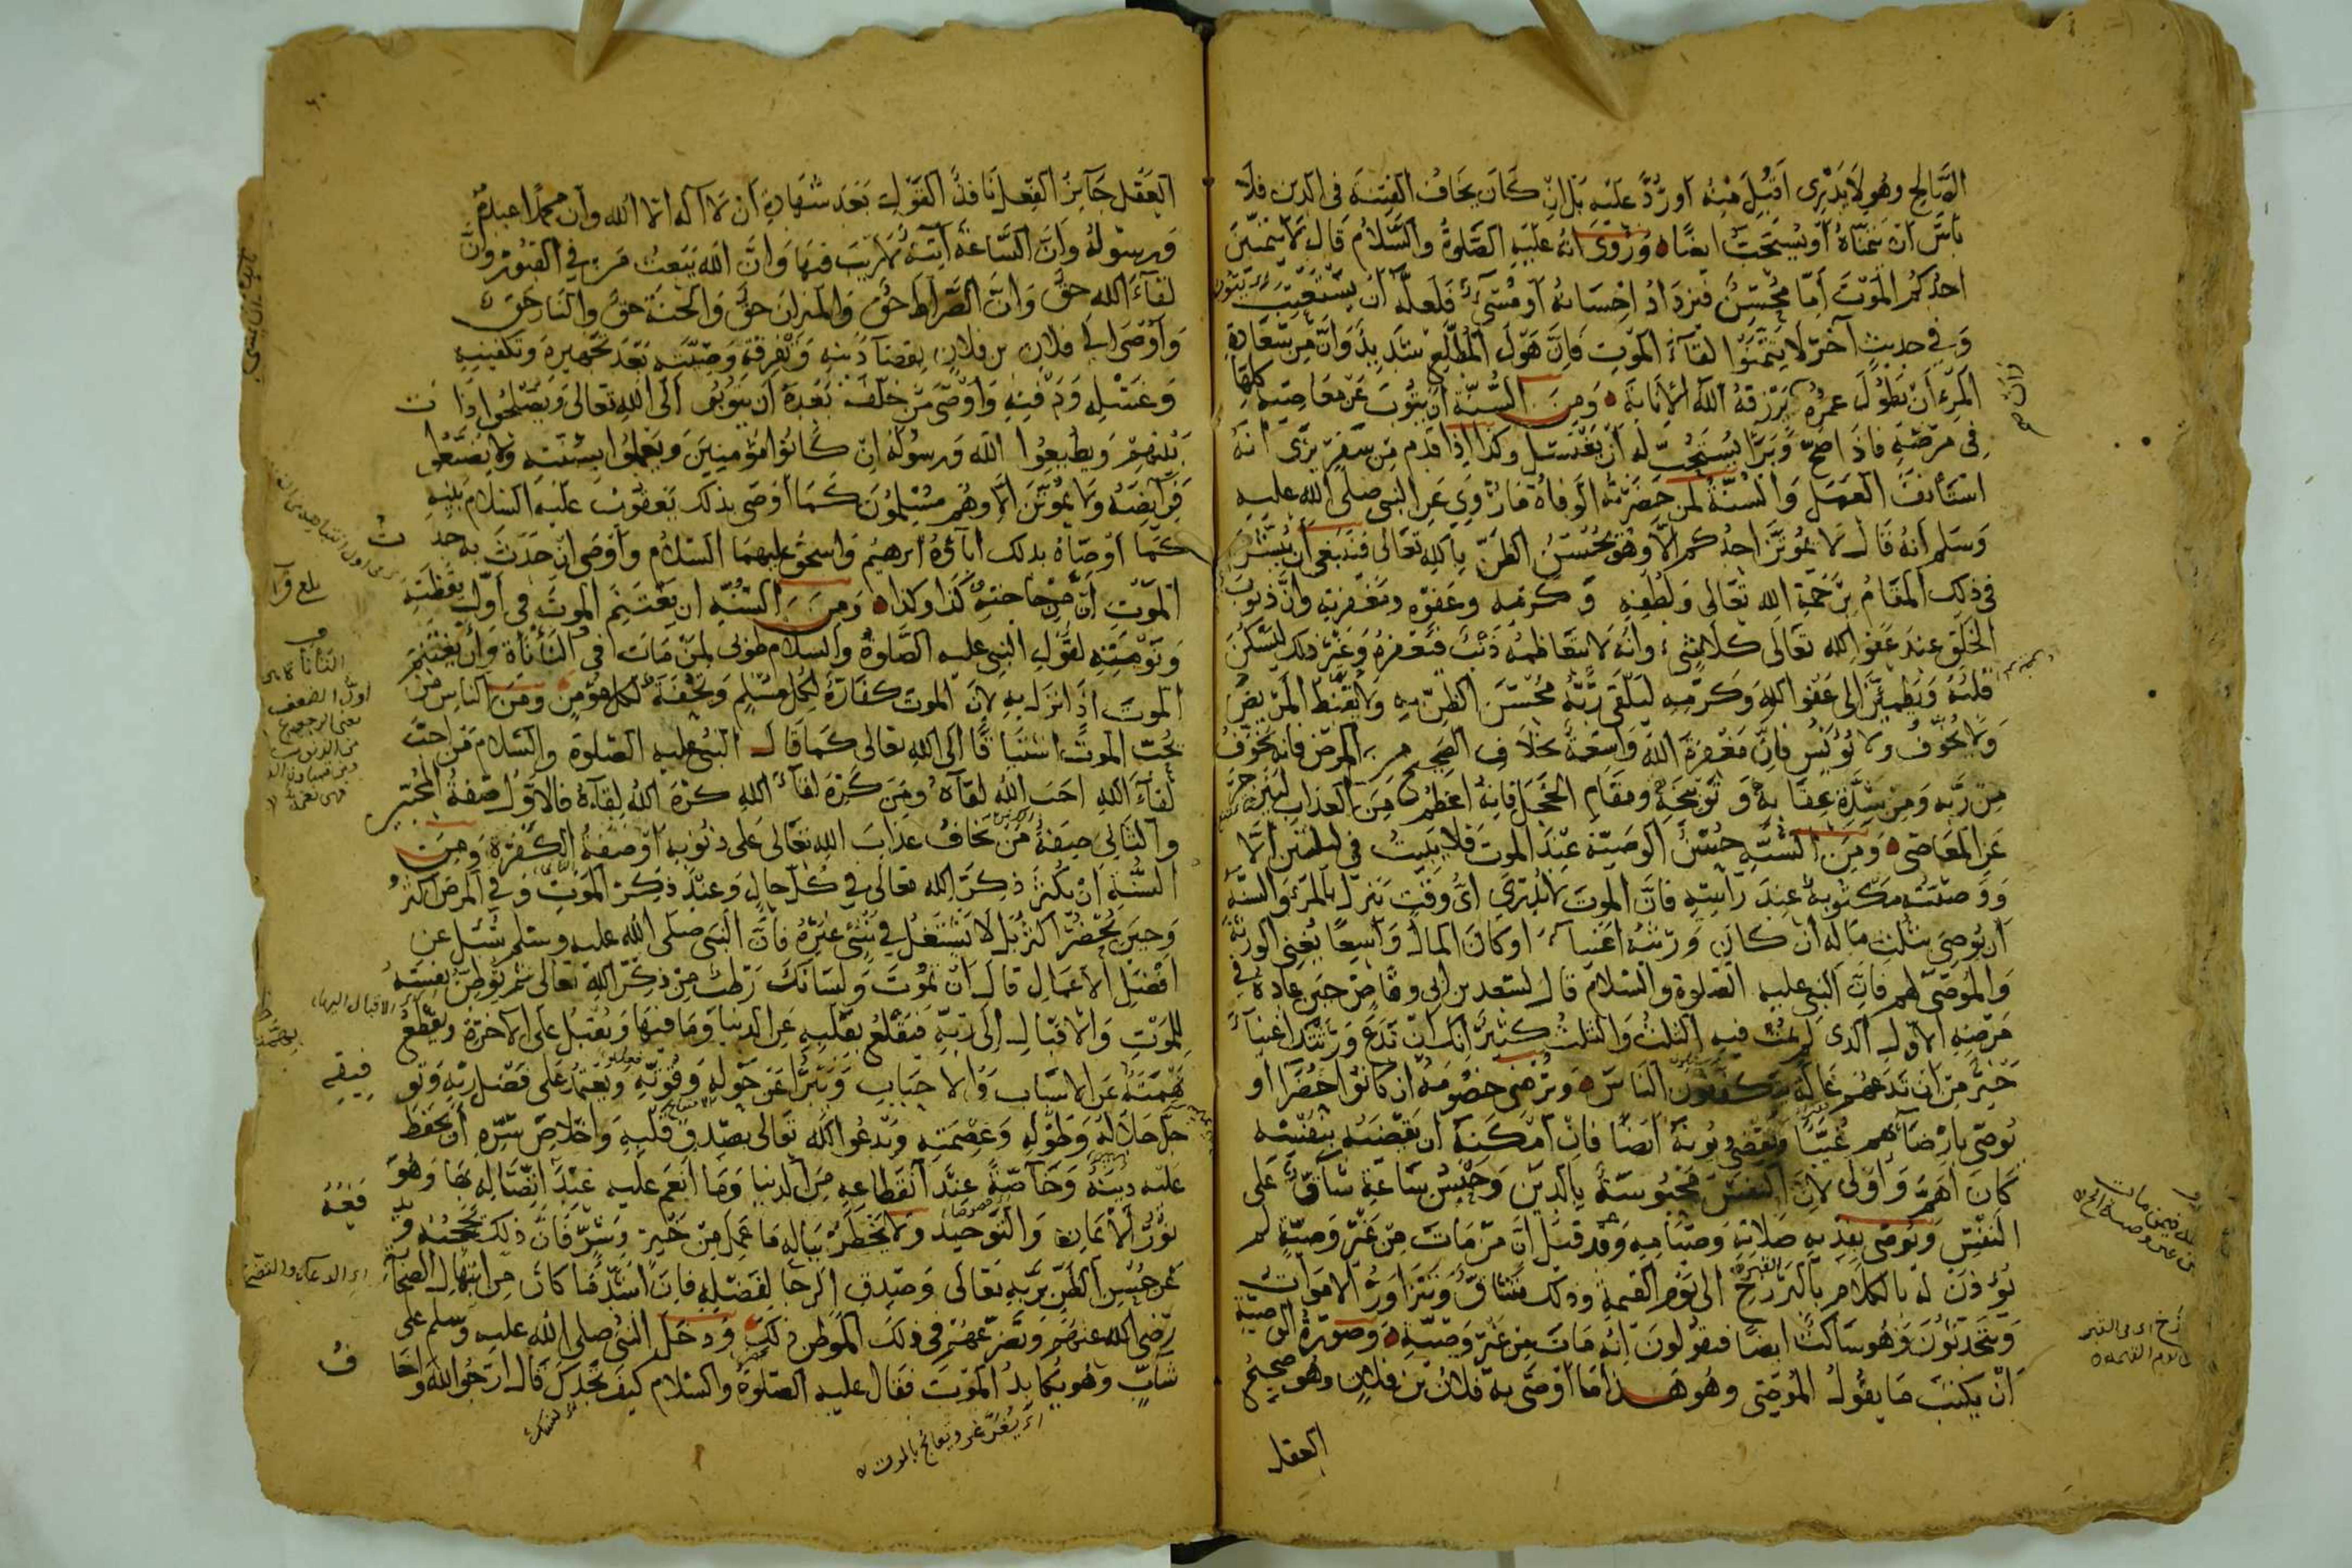 الصالح وهو لا يدرى اقبل منه او رد عليه بل ان كان يخاف الفتنة فى الدين فلا
باس ان يتمناه او يستحب ايضا وروى انه عليه الصلوة والسلام قال لا يتمنين
احدكم الموت اما محسن فيزداد احسانه او مسىء فلعله ان يستعتب
وفى حديث آخر لا يتمنوا لقاء الموت فان هول المطلع شديد وان من سعادة
المرء ان يطول عمره يرزقه الله الانابة ومن السنة ان يتوب عن معاصيه كلها
فى مرضه فاذا صح وبرأ يستحب له ان يغتسل وكذا اذا قدم من سفر يرى انه
استأنف العمل والسنة لمن حضرته الوفاة ما روى عن النبى صلى الله عليه
وسلم انه قال لا يموتن احدكم الا وهو يحسن الظن بالله تعالى فينبغى ان يبشر
فى ذلك المقام برحمة الله تعالى ولطفه وكرمه وعفوه ومغفرته وان ذنوب
الخلق عند عفو الله تعالى كلا شىء وانه لا يتعاظمه ذنب فيغفره وغير ذلك ليسكن
قلبه ويطمئن الى عفو الله وكرمه ليلقى ربه محسن الظن به ولا يقنط المريض
ولا يخوف ولا يؤيس فان مغفرة الله واسعة بخلاف الصحيح من المرض فانه يخوف
من ربه ومن شدة عقابه وتوبيخه ومقام الخجل فانه اعظم من العذاب لينزجر
عن المعاصى ومن السنة حسن الوصية عند الموت فلا يبيت فى ليلتين الا
ووصيته مكتوبة عند رأسه فان الموت لا يدرى اى وقت ينزل بالمرء والسنة
ان يوصى بثلث ماله ان كان ورثته اغنياء او كان المال واسعا يغنى الورثة
والموصى لهم فان النبى عليه الصلوة والسلام قال لسعد بن ابى وقاص حين عاده فى
مرضه الاول الذى لم يمت فيه الثلث والثلث كثير انك ان تدع ورثتك اغنياء
خير من ان تدعهم عالة يتكففون الناس ويرضى خصومه ان كانوا حضرا او
يوصى بارضائهم غيبا ويقضى ديونه ايضا فان امكنه ان يقضيه بنفسه
كان اهم واولى لان النفس محبوسة بالدين وحبس ساعة شاق على
النفس ويوصى بفدية صلاته وصيامه وقد قيل ان من مات من غير وصية لم
يؤذن له بالكلام بالبرزخ الى يوم القيمة وذلك يتشاق ويتزاور الاموات
ويتحدثون وهو ساكت ايضا فيقولون انه مات من غير وصية وصورة الوصية
ان يكتب ما يقول الموصى وهو هذا ما اوصى به فلان بن فلان وهو صحيح
العقل
العقل جائز الفعل نافذ القول بعد شهادة ان لا اله الا الله وان محمدا عبده
ورسوله وان الساعة آتية لا ريب فيها وان الله يبعث من فى القبور وان
لقاء الله حق وان الصراط حق والميزان حق والجنة حق والنار حق
واوصى الى فلان بن فلان بقضاء دينه وتفرقة وصيته بعد تجهيزه وتكفينه
وغسله ودفنه واوصى من خلف بعده ان يتوبوا الى الله تعالى ويصلحوا ذات
بينهم ويطيعوا الله ورسوله ان كانوا مؤمنين ويعملوا بسنته ولا يضيعوا
فرايضه ولا يموتن الا وهم مسلمون كما اوصى بذلك يعقوب عليه السلام بنيه
كما اوصاه بذلك آباؤه ابرهيم واسحق عليهما السلام واوصى ان حدث به حدث
الموت ان من حاجته كذا وكذا ومن السنة ان يغتنم الموت فى اول يقظته
وتوبته لقول النبى عليه الصلوة والسلام طوبى لمن مات فى النأنأة وان يغتنم
الموت اذا نزل به لان الموت كفارة لكل مسلم وتحفة لكل مؤمن ومن الناس من
يحب الموت اشتياقا الى الله تعالى كما قال النبى عليه الصلوة والسلام من احب
لقاء الله احب الله لقاءه ومن كره لقاء الله كره الله لقاءه فالاول صفة المحبين
والثانى صفة من يخاف عذاب الله تعالى على ذنوبه او صفة الكفرة ومن
السنة ان يكثر ذكر الله تعالى فى كل حال وعند ذكر الموت وفى المرض اكثر
وحين يحضر اكثر بل لا يشتغل فى شئ غيره فان النبى صلى الله عليه وسلم سئل عن
افضل الاعمال قال ان تموت ولسانك رطب من ذكر الله تعالى ثم يوطن نفسه
للموت والاقبال الى ربه فيقلع بقلبه عن الدنيا وما فيها ويقبل على الآخرة ويقطع
همته عن الاسباب والاحباب ويتبرأ عن حوله وقوته ويعتمد على فضل ربه وتوفيقه
جل جلاله وطوله وعصمته ويدعو الله تعالى بصدق قلبه واخلاص سره ان يحفظ
عليه دينه وخاصة عند انقطاعه من الدنيا وما انعم عليه عند اتصاله بها وهو
نور الايمان والتوحيد ولا يخطر بباله ما عمل من خير وشر فان ذلك يحجبه
عن حسن الظن بربه تعالى وصدق الرجا لفضله فان اشد ما كان من ابتهال الصحابة
رضى الله عنهم وتضرعهم فى ذلك الموطن ذلك ودخل النبى صلى الله عليه وسلم على
شاب وهو يكابد الموت فقال عليه الصلوة والسلام كيف تجدك قال ارجو الله واخاف